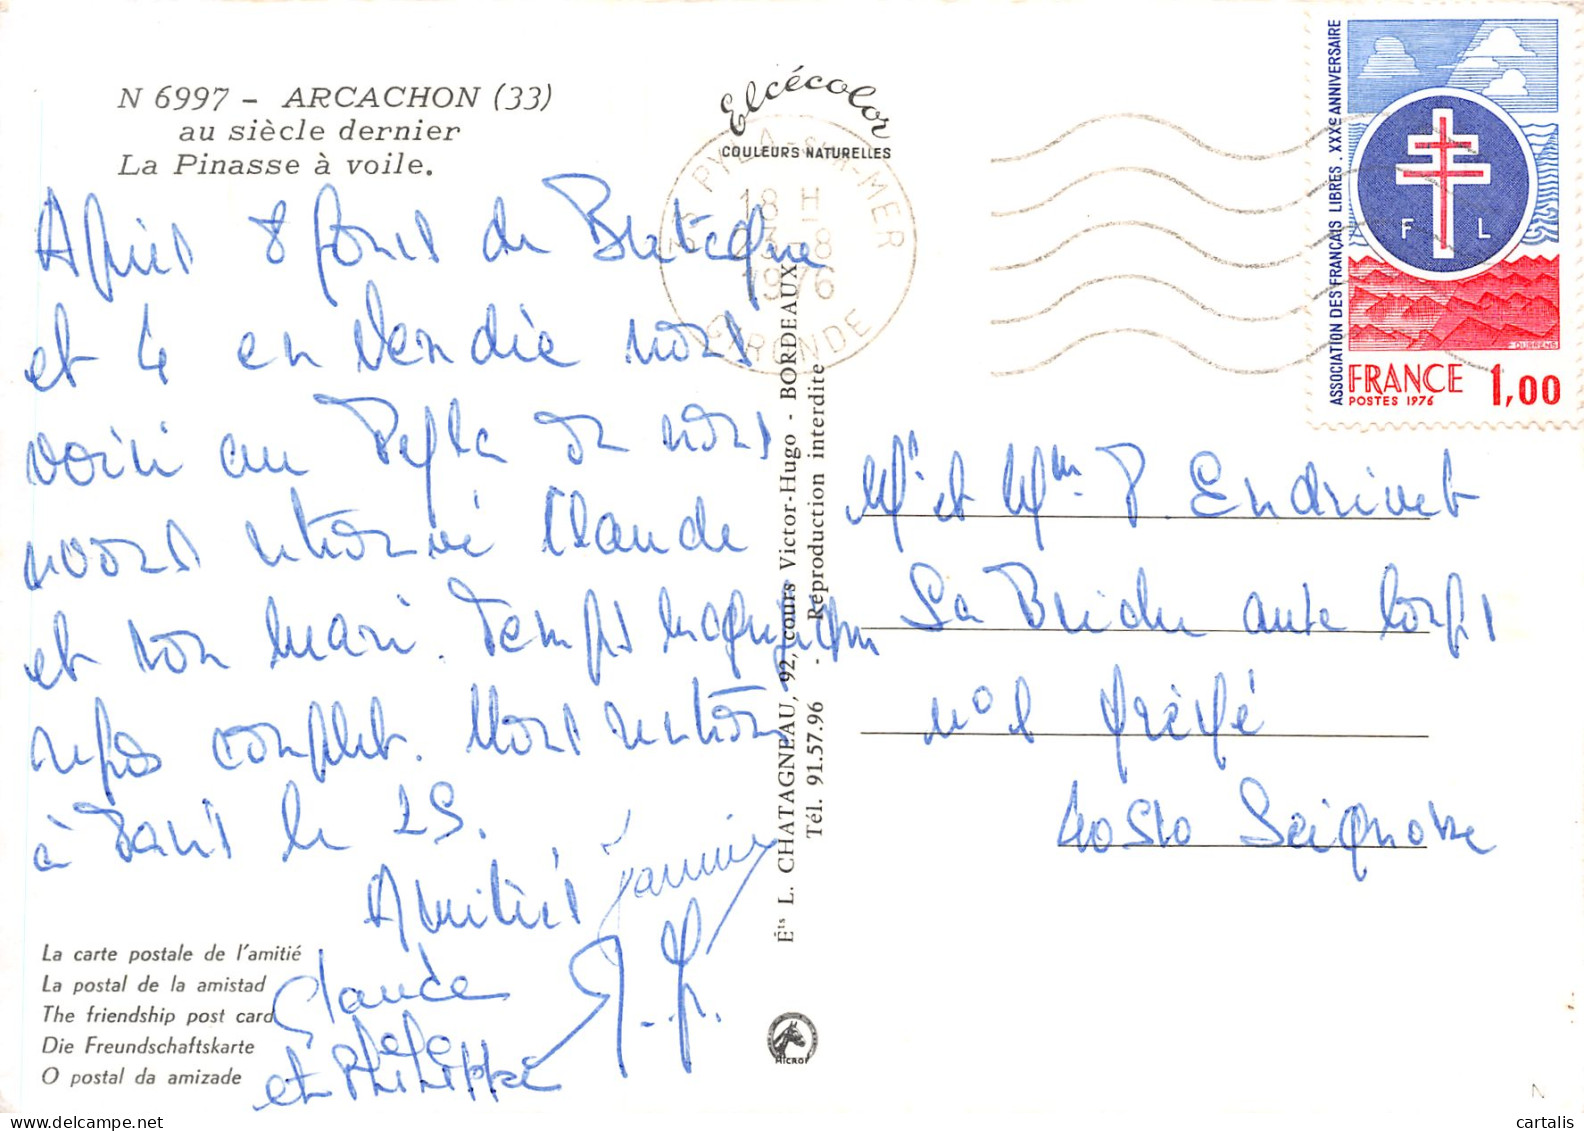 N 6997 - ARCACHON (33)
au siècle dernier
La Pinasse à voile.
Elcécolor
COULEURS NATURELLES
PYLA-sur-MER
18 H
3-8
1976
GIRONDE
ASSOCIATION DES FRANÇAIS LIBRES . XXXe ANNIVERSAIRE
F L
DURRENS
FRANCE 1,00
POSTES 1976
Après 8 jours de Bretagne
et 4 en Vendée nous
voici au Pyla où nous
avons retrouvé Claude
et son mari. Temps magnifique
repos complet. Nous rentrons
à Paris le 25.
Amitiés
Jannie
Claude
et Philippe
Ets L. CHATAGNEAU, 92, cours Victor-Hugo - BORDEAUX
Tél. 91.57.96 - Reproduction interdite
Mr et Mme P. Endrivet
La Biche aux
n° 1
40510 Seignosse
La carte postale de l'amitié
La postal de la amistad
The friendship post card
Die Freundschaftskarte
O postal da amizade
N
cartalis